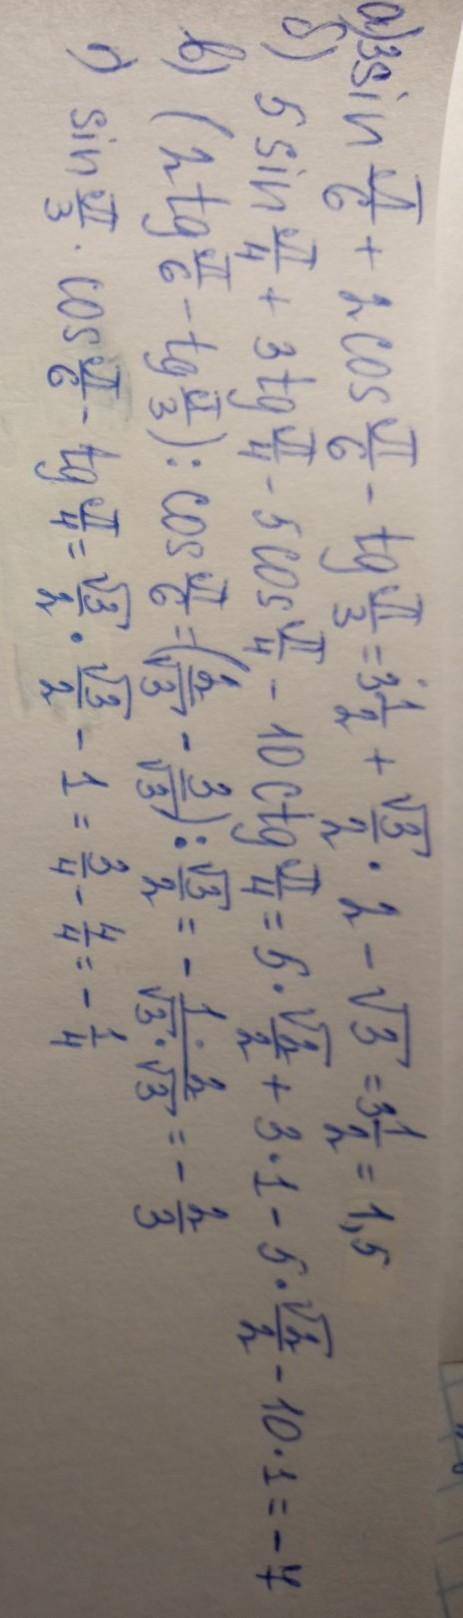 а) 3 sin π/6 + 2 cos π/6 - tg π/3 = 3·1/2 + √3/2 · 2 - √3 = 3 1/2 = 1,5
б) 5 sin π/4 + 3 tg π/4 - 5 cos π/4 - 10 ctg π/4 = 5 · √2/2 + 3 · 1 - 5 · √2/2 - 10 · 1 = -7
в) (2 tg π/6 - tg π/3) : cos π/6 = (2/√3 - 3/√3) : √3/2 = - 1·2/√3·√3 = - 2/3
г) sin π/3 · cos π/6 - tg π/4 = √3/2 · √3/2 - 1 = 3/4 - 4/4 = - 1/4